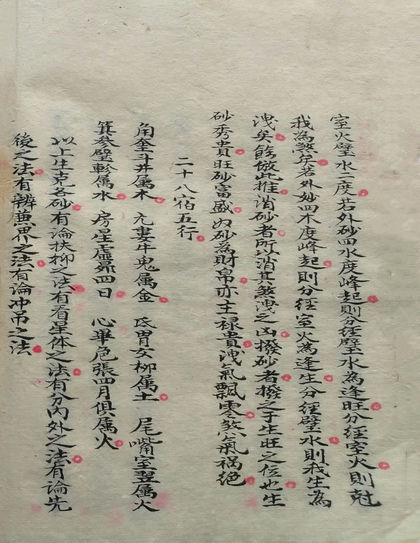 室火璧水二度若外砂四水度峰起則分經璧水為逢旺分經室火則尅
我為煞矣若外砂四木度峰起則分經室火為逢生分經璧水則我生為
洩矣餘倣此推消砂者所以消其煞洩之凶撥砂者撥之于生旺之位也生
砂秀貴旺砂富盛奴砂為財帛亦主禄貴洩氣飄零煞氣禍絶
二十八宿五行
角奎斗井属木 亢婁牛鬼属金 氐胃女柳属土 尾嘴室翌属火
箕參璧軫属水 房星虚昴四日 心畢危張四月俱属火
以上生克各砂有論扶抑之法有看星体之法有分內外之法有論先
後之法有辨世界之法有論冲吊之法